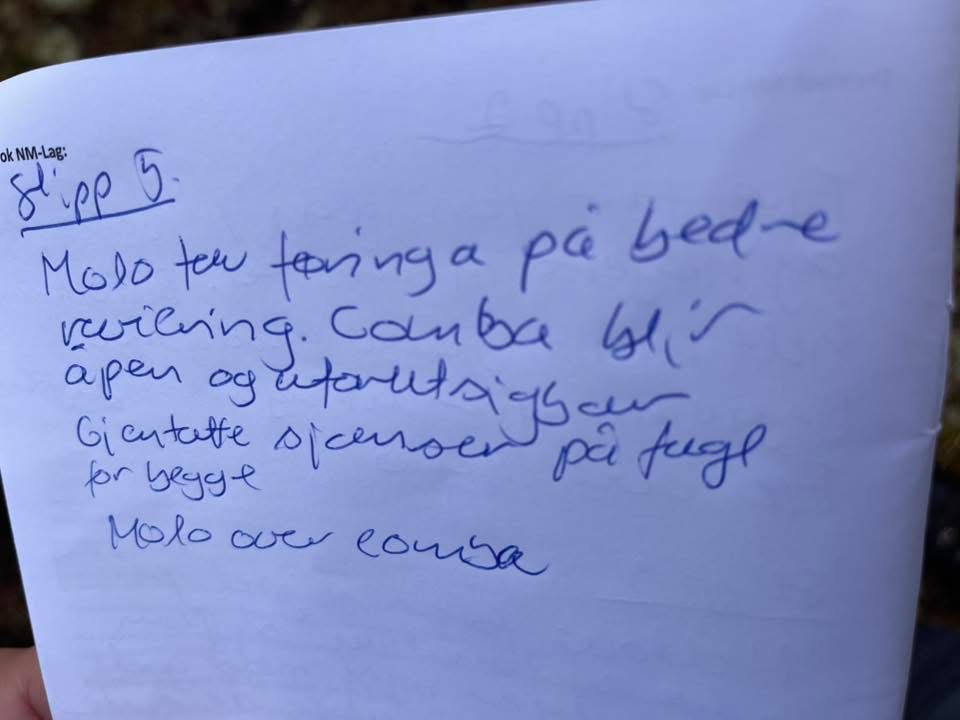 ok NM-Lag:
Slipp 5.
Molo tar føringa på bedre
revilering. Comba blir
åpen og uforutsigbar
Gjentatte sjanser på fugl
for begge
Molo over comba